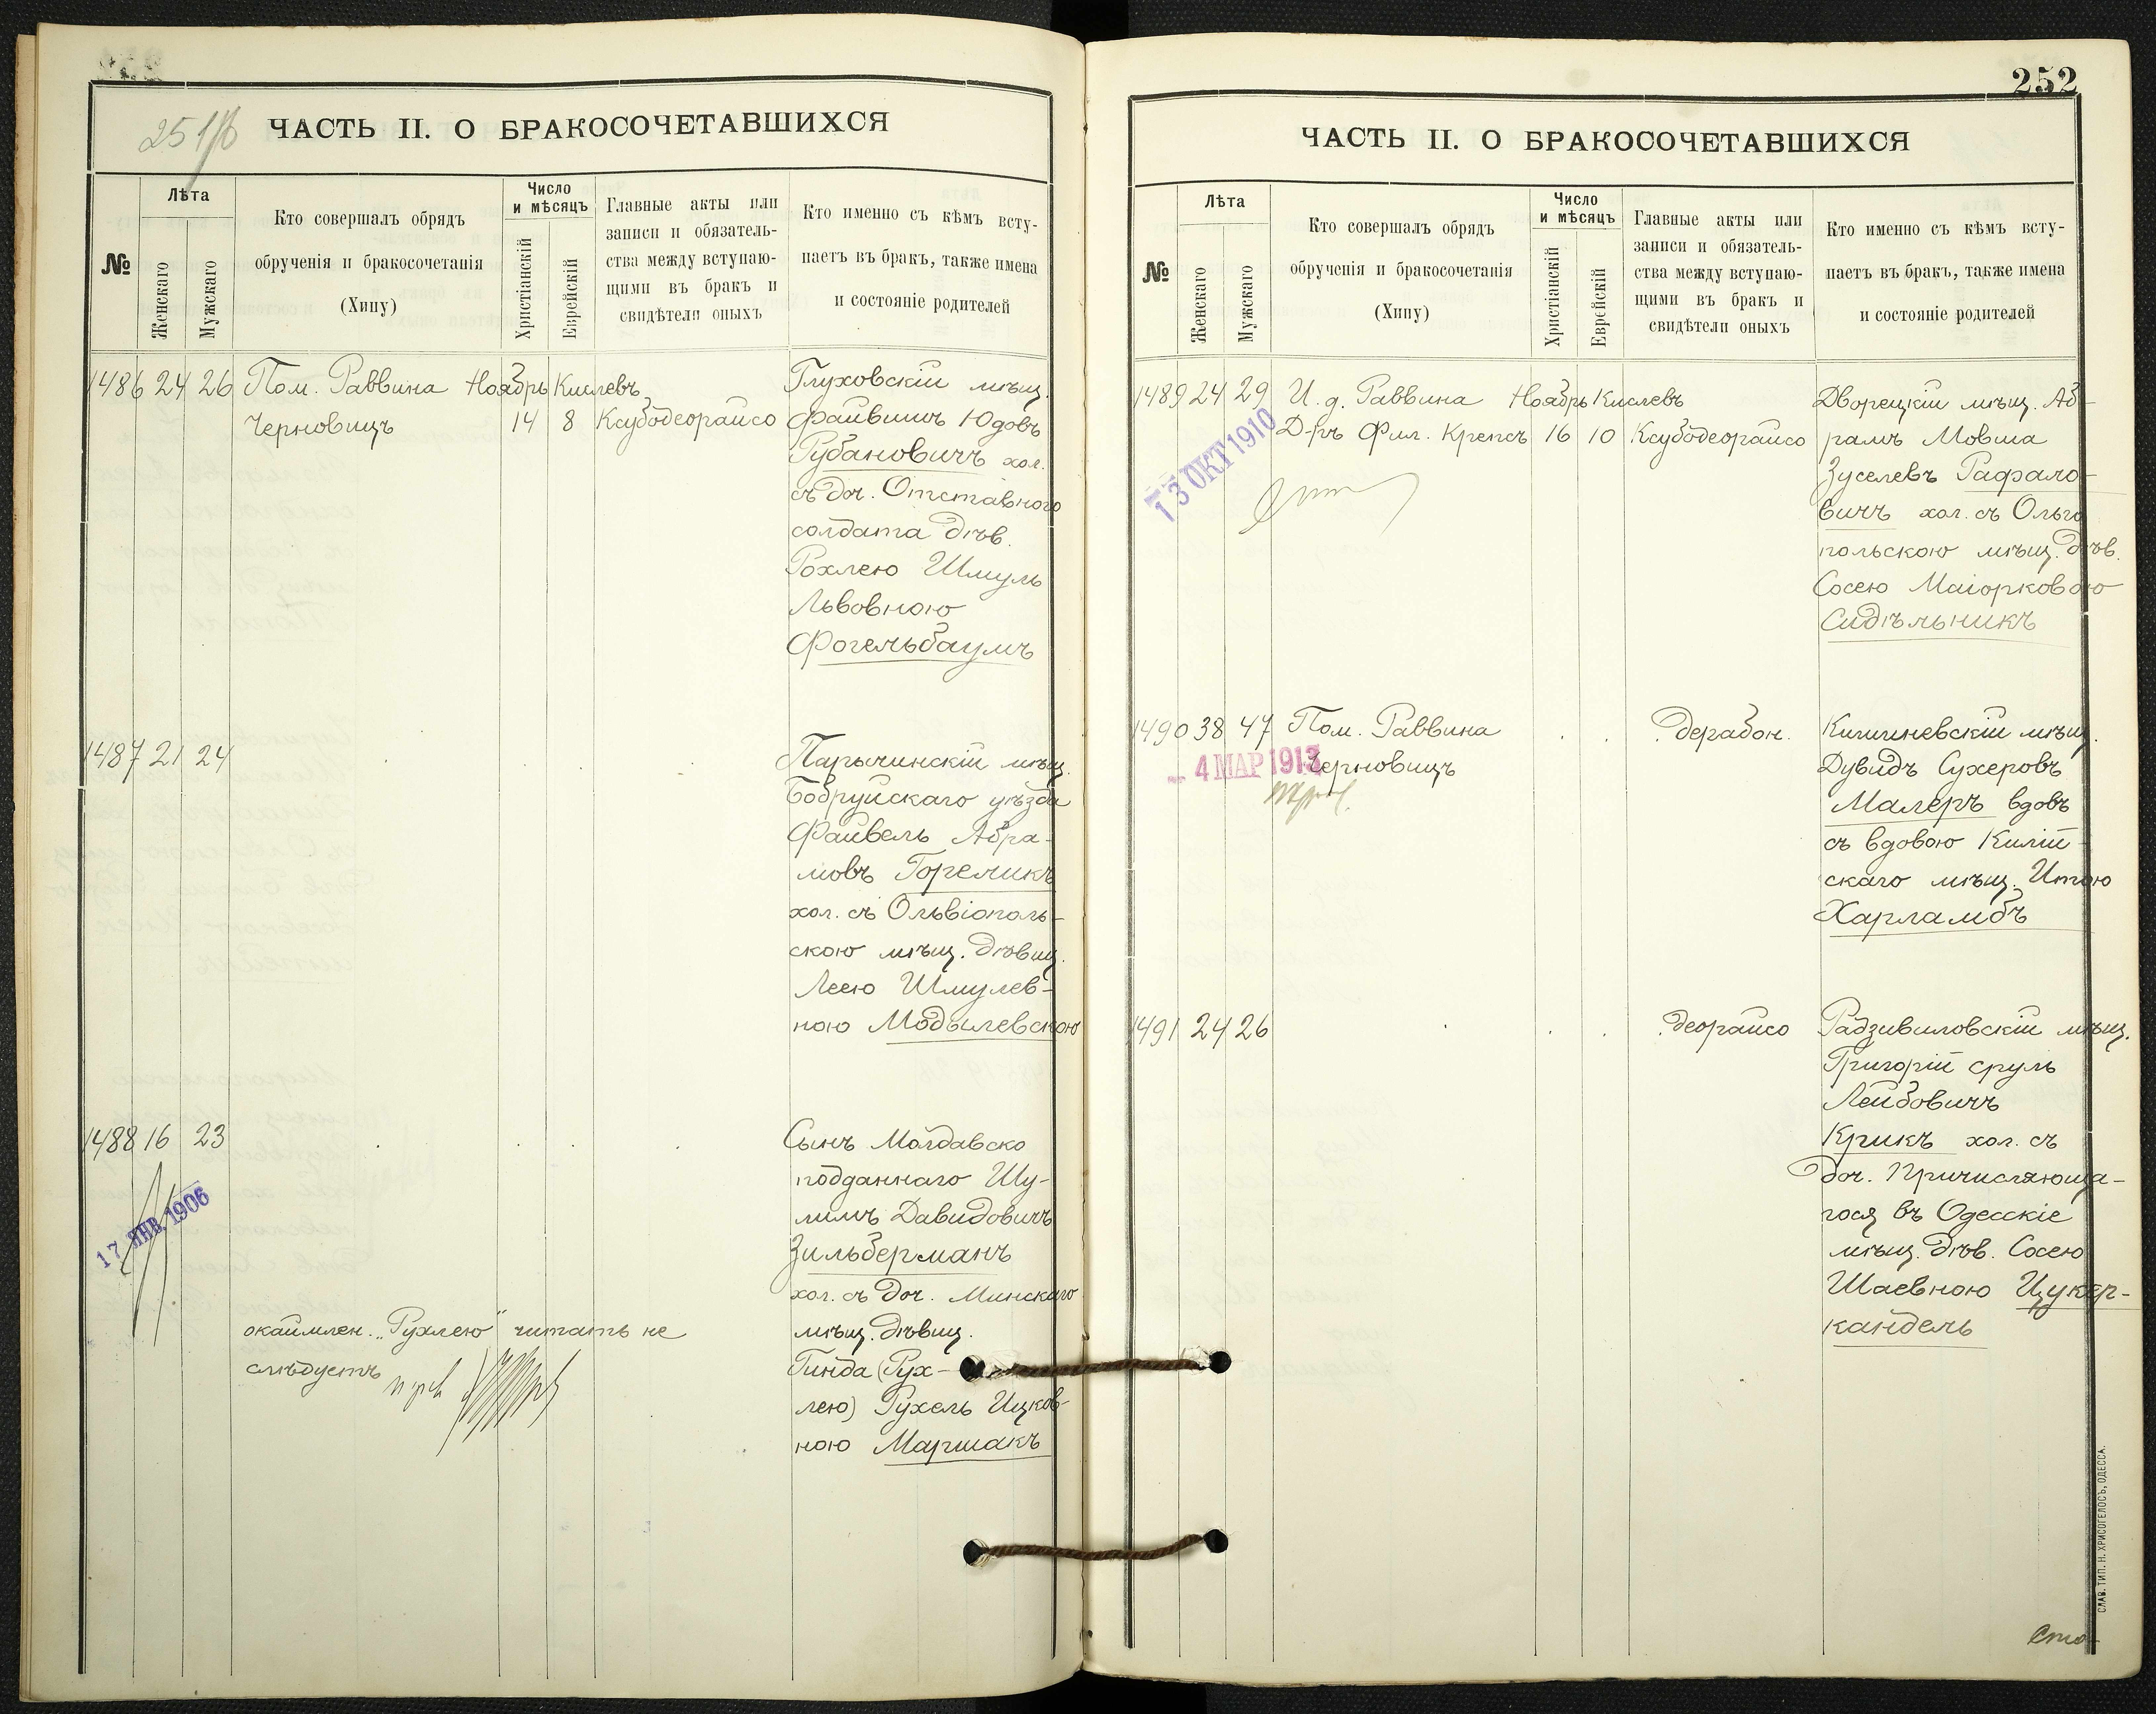 251/б
ЧАСТЬ II. О БРАКОСОЧЕТАВШИХСЯ
№
Лѣта
Женскаго
Мужскаго
Кто совершалъ обрядъ
обрученія и бракосочетанія
(Хипу)
Число
и мѣсяцъ
Христіанскій
Еврейскій
Главные акты или
записи и обязатель-
ства между вступаю-
щими въ бракъ и
свидѣтели оныхъ
Кто именно съ кѣмъ всту-
паетъ въ бракъ, также имена
и состояніе родителей
1486 24 26 Пом. Раввина Ноябрь Кислевъ
Черновицъ 14 8 Ксубодеорайсо
Глуховскій мѣщ.
Файвишъ Юдовъ
Рубановичъ хол.
съ доч. Отставного
солдата дѣв.
Рохлею Шмуль
Львовною
Фогельбаумъ
1487 21 24
Паричинскій мѣщ.
Бобруйскаго уѣзда
Файвель Абра-
мовъ Гореликъ
хол. съ Ольвіополь-
скою мѣщ. дѣвиц.
Леею Шмулев-
ною Модылевскою
1488 16 23
17 ЯНВ. 1906
Сынъ Молдавско
подданнаго Шу-
лимъ Давидовичъ
Зильберманъ
хол. съ доч. Минскаго
мѣщ. дѣвиц.
Гинда (Рух-
лею) Рухель Ицков-
ною Маршакъ
окаймлен. „Рухлею" читать не
слѣдуетъ
252
ЧАСТЬ II. О БРАКОСОЧЕТАВШИХСЯ
№
Лѣта
Женскаго
Мужскаго
Кто совершалъ обрядъ
обрученія и бракосочетанія
(Хипу)
Число
и мѣсяцъ
Христіанскій
Еврейскій
Главные акты или
записи и обязатель-
ства между вступаю-
щими въ бракъ и
свидѣтели оныхъ
Кто именно съ кѣмъ всту-
паетъ въ бракъ, также имена
и состояніе родителей
1489 24 29 И. д. Раввина Ноябрь Кислевъ
Д-ръ Фил. Крепсъ 16 10 Ксубодеорайсо
13 ОКТ 1910
Дворецкій мѣщ. Аб-
рамъ Мовша
Зуселевъ Рафало-
вичъ хол. съ Ольго
польскою мѣщ. дѣв.
Сосею Маіорковою
Сидѣльникъ
1490 38 47 Пом. Раввина . . . дерабон.
Черновицъ
4 МАР 1913
Кишиневскій мѣщ.
Дувидъ Сухеровъ
Малеръ вдовъ
съ вдовою Килій-
скаго мѣщ. Итою
Харламбъ
1491 24 26 . . . . деорайсо
Радзивиловскій мѣщ.
Григорій сруль
Лейбовичъ
Крикъ хол. съ
доч. Причисляюща-
гося въ Одесскіе
мѣщ. дѣв. Сосею
Шаевною Цукер-
кандель
СЛАВ. ТИП. Н. ХРИСОГЕЛОСЪ, ОДЕССА.